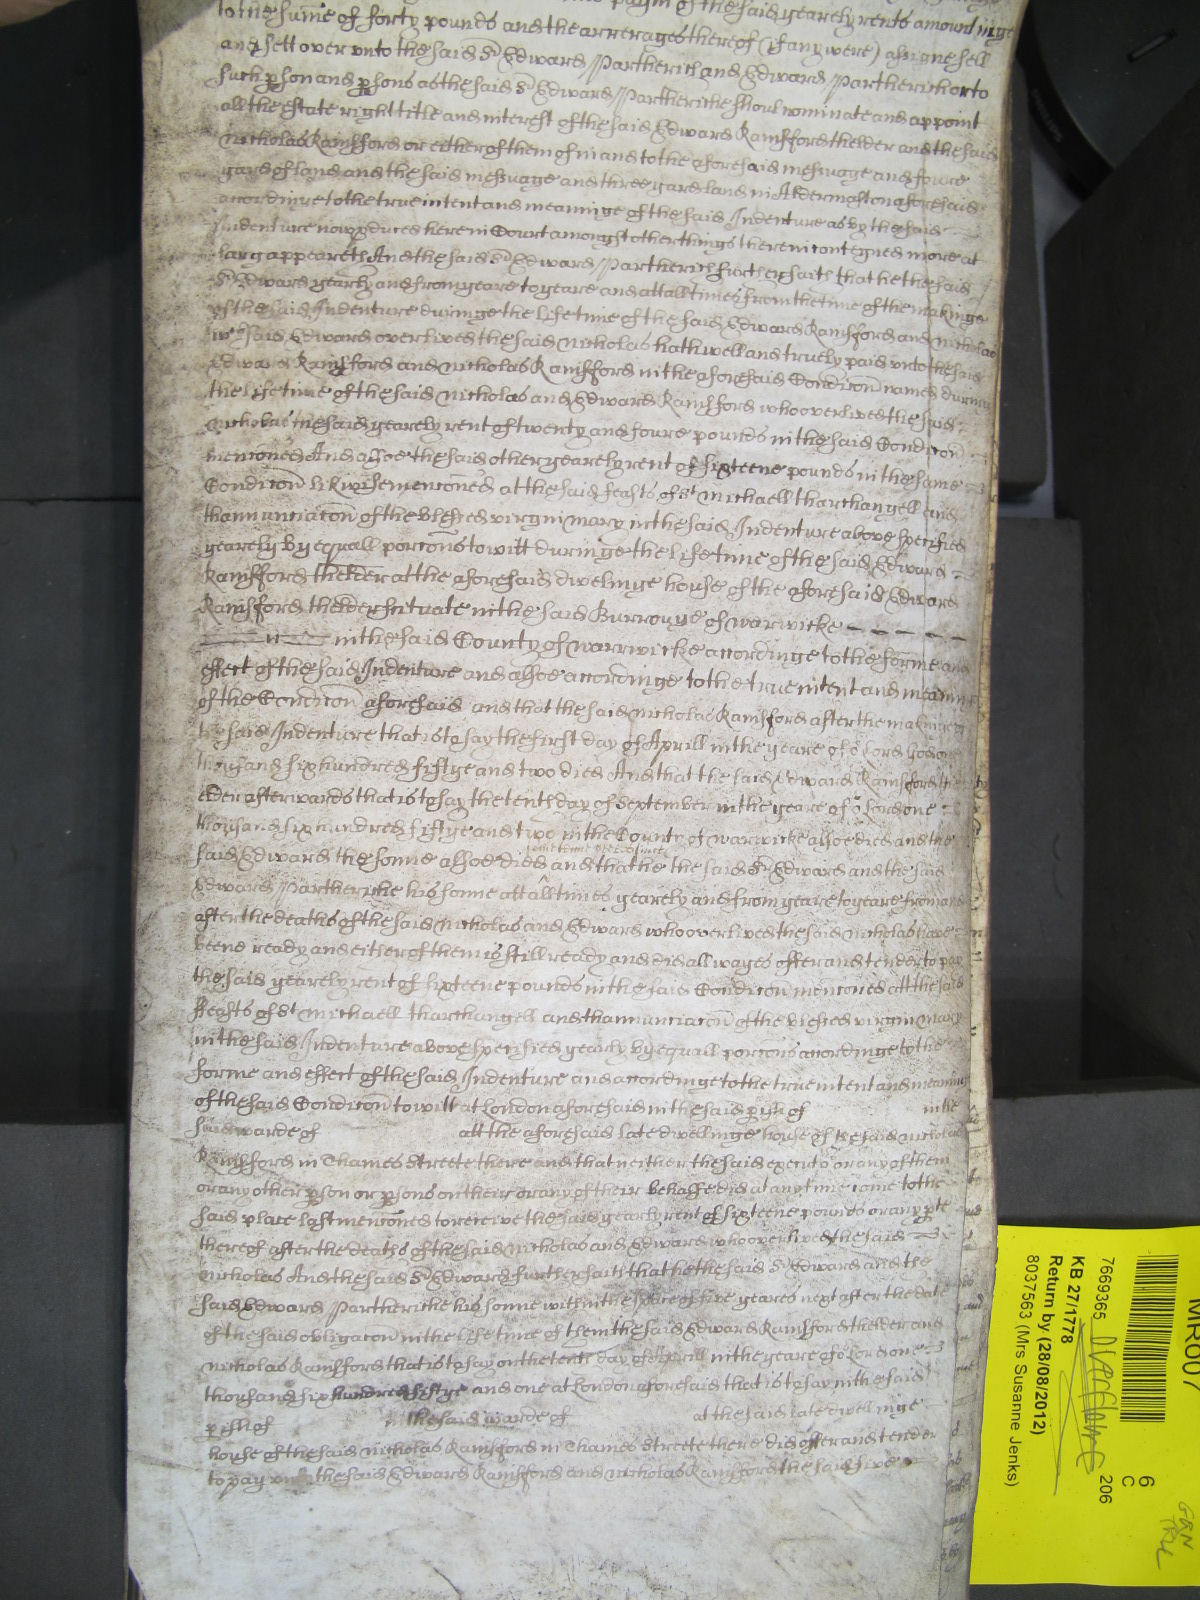 paym of the said yearely rents amountinge
to the sume of forty pounds and the arrerages thereof (if any were) assigne sell
and sett over unto the said Sr Edward Partherich and Edward Partherich or to
such pson and psons as the said Sr Edward Partheriche shoul nominate and appoint
all the estate right title and interest of the said Edward Rainsford thelder and the said
Nicholas Rainsford or either of them of in and to the aforesaid messuage and fowre
yard of land and the said messuage and three yard land in Aldermston aforesaid
accordinge to the true intent and meaninge of the said Indenture as by the said
Indenture now pduced here in Court amongst other things therein conteyned more at
large appeareth And the said Sr Edward Partherich further saith that he the said
Sr Edward yearly and from yeare to yeare and att all times from the time of the makinge
of the said Indenture duringe the life time of the said Edward Rainsford and Nicholas
wch said Edward overlived the said Nicholas hath well and truely paid unto the said
Edward Rainsford and Nicholas Rainsford in the aforesaid Condicon named duringe
the life time of the said Nicholas and Edward Rainsford who overlived the said
Nicholas the said yearely rent of twenty and foure pounds in the said Condicon
menconed And alsoe the said other yearely rent of sixteene pounds in the same
Condicon likwise menconed at the said feasts of St Michaell tharchangell and
thannunciacon of the blessed virgin Mary in the said Indenture above specified
yearely by equall porcons to witt duringe the life time of the said Edward
Rainsford thelder at the aforesaid dwelinge house of the aforesaid Edward
Rainsford thelder scituate in the said Burrouge of Warwicke
in the said County of Warrwicke accordinge to the forme and
effect of the said Indenture and alsoe accordinge to the true intent and meaninge
of the Condicon aforesaid and that the said Nicholas Rainsford after the makinge of
the said Indenture that is to say the first day of Aprill in the yeare of or Lord God one
thousand six hundred fiftye and two died And that the said Edward Rainsford the
elder afterwards that is to say the tenth day of September in the yeare of or Lord one
thousand six hundred fiftye and two in the County of Warwicke alsoe died and the
said Edward the sonne alsoe died and that he the said Sr Edward and the said
Edward Partheriche his sonne att all times yearely and from yeare to yeare from and
after the deaths of the said Nicholas and Edward who overlived the said Nicholas have
beene ready and either of them is still ready and did allwages offer and tender to pay
the said yearely rent of sixteene pounds in the said Condicon menconed att the said
ffeasts of St Michaell tharchangell and thannunciacon of the blessed virgin Mary
in the said Indenture above specified yearly by equall porcons accordinge to the
forme and effect of the said Indenture and accordinge to the true intent and meaninge
of the said Condicon to witt at London aforesaid in the said pish of in the
said warde of att the aforesaid late dwellinge house of the said Nicholas
Rainsford in Thames Streete there and that neither the said executors or any of them
or any other pson or psons on their or any of their behalfe did at any time come to the
said place last menconed to receive the said yearly rent of sixteene pounds or any pte
thereof after the deaths of the said Nicholas and Edward who overlived the said
Nicholas And the said Sr Edward further saith that he the said Sr Edward and the
said Edward Partheriche his sonne within the space of five yeares next after the date
of the said obligacon in the life time of them the said Edward Rainsford thelder and
Nicholas Rainsford that is to say on the tenth day of Aprill in the yeare of or Lord one
thousand six hundred fiftye and one at London aforesaid that is to say in the said
pish of in the said warde of at the said late dwelinge
house of the said Nicholas Rainsford in Thames Streete there did offer and tender
to pay unto the said Edward Rainsford and Nicholas Rainsford the said five
MR007
6
C
206
7669365
KB 27/1778
Return by (28/08/2012)
8037563 (Mrs Susanne Jenks)